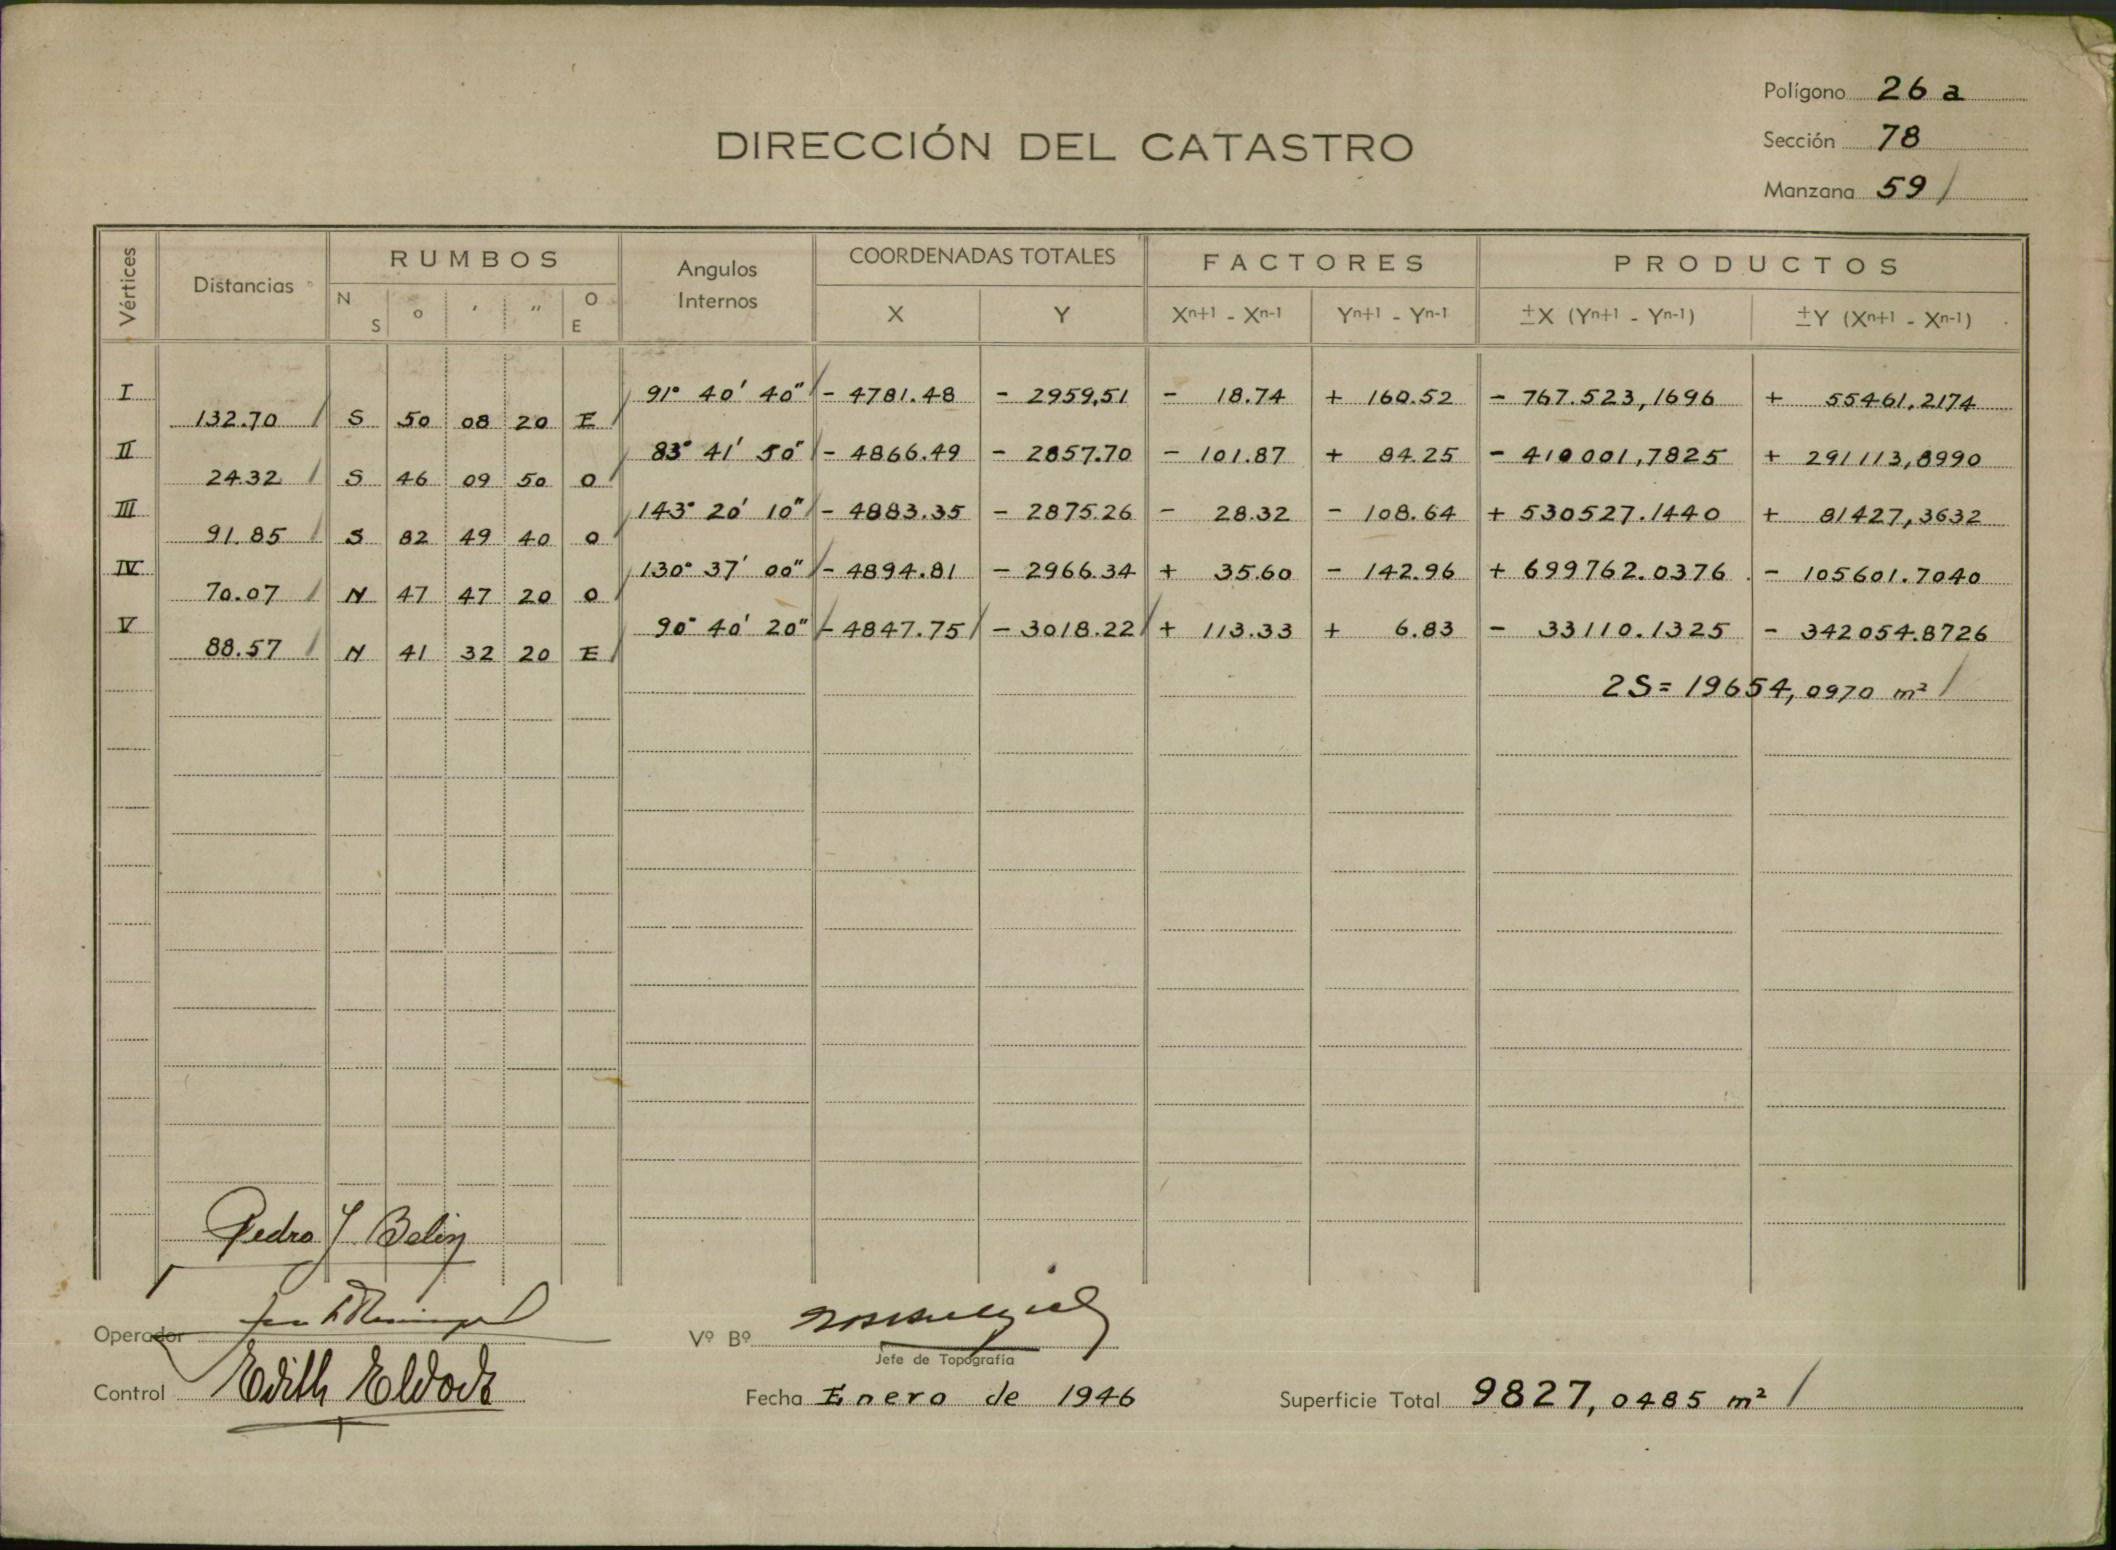 Polígono 26 a
DIRECCIÓN DEL CATASTRO
Sección 78
Manzana 59 /
Vértices Distancias RUMBOS Angulos Internos COORDENADAS TOTALES FACTORES PRODUCTOS
N S ° ′ ″ O E X Y Xn+1 - Xn-1 Yn+1 - Yn-1 ±X (Yn+1 - Yn-1) ±Y (Xn+1 - Xn-1)
I 91° 40′ 40″ - 4781.48 - 2959,51 - 18.74 + 160.52 - 767.523,1696 + 55461,2174
132.70 / S 50 08 20 E /
II 83° 41′ 50″ - 4866.49 - 2857.70 - 101.87 + 84.25 - 410001,7825 + 291113,8990
24.32 / S 46 09 50 O /
III 143° 20′ 10″ - 4883.35 - 2875.26 - 28.32 - 108.64 + 530527.1440 + 81427,3632
91.85 / S 82 49 40 O /
IV 130° 37′ 00″ - 4894.81 - 2966.34 + 35.60 - 142.96 + 699762.0376 - 105601.7040
70.07 / N 47 47 20 O /
V 90° 40′ 20″ - 4847.75 / - 3018.22 / + 113.33 + 6.83 - 33110.1325 - 342054.8726
88.57 / N 41 32 20 E /
2S = 19654,0970 m² /
Pedro J Belin
Operador
Vº Bº
Jefe de Topografía
Control Edith
Fecha Enero de 1946
Superficie Total 9827,0485 m² /